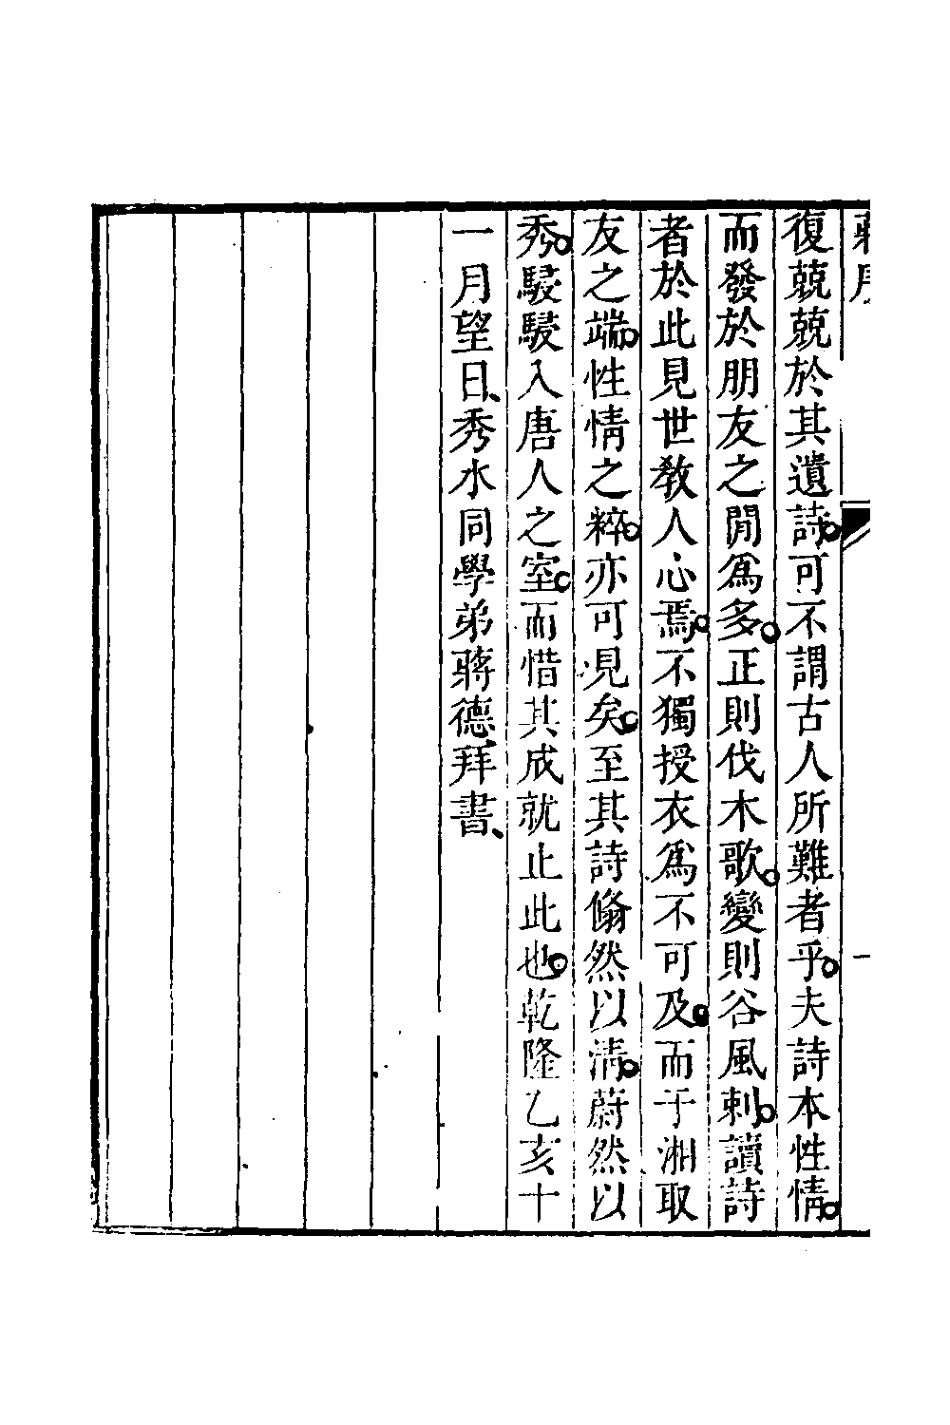 蔣序
復兢兢於其遺詩可不謂古人所難者乎夫詩本性情
而發於朋友之閒爲多正則伐木歌變則谷風刺讀詩
者於此見世敎人心焉不獨授衣爲不可及而于湘取
友之端性情之粹亦可見矣至其詩翛然以淸蔚然以
秀駸駸入唐人之室而惜其成就止此也乾隆乙亥十
一月望日秀水同學弟蔣德拜書
一